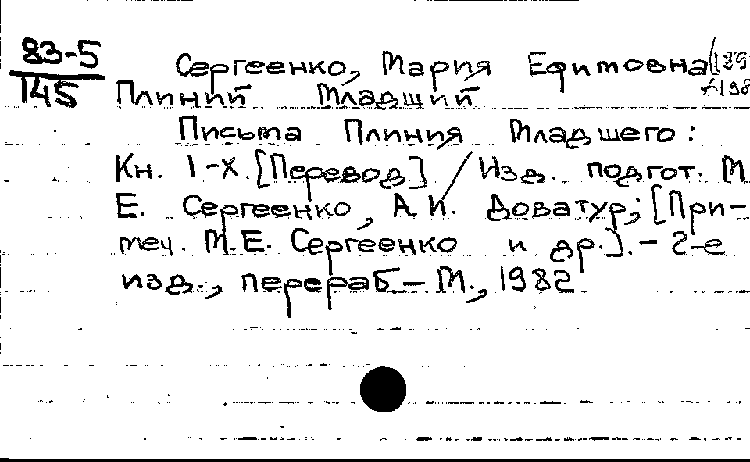 83-5
145
Сергеенко, Мария Ефимовна
Плиний Младший
Письма Плиния Младшего:
Кн. I-X. [Перевод] / Изд. подгот. М.
Е. Сергеенко, А.И. Доватур; [При-
меч. М.Е. Сергеенко и др.]. - 2-е
изд., перераб - М., 1982